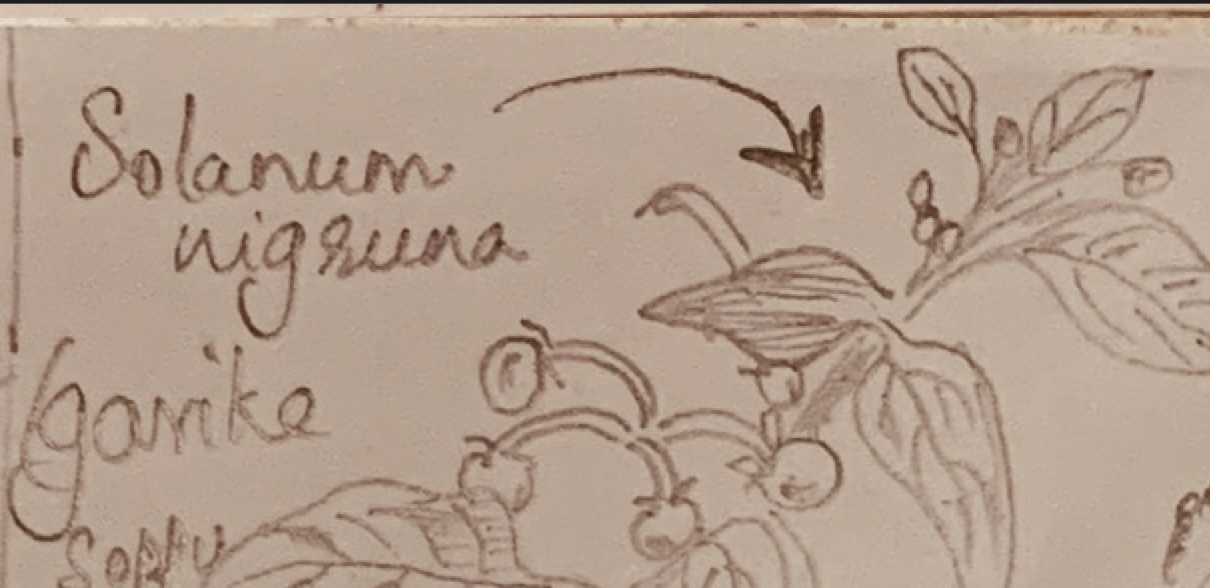 Solanum
nigruma
Ganike
Soppu